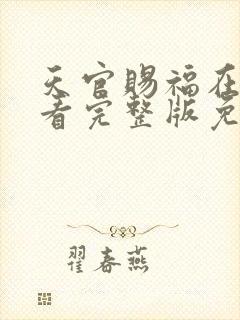 天官赐福在
看完整版免
翟春燕